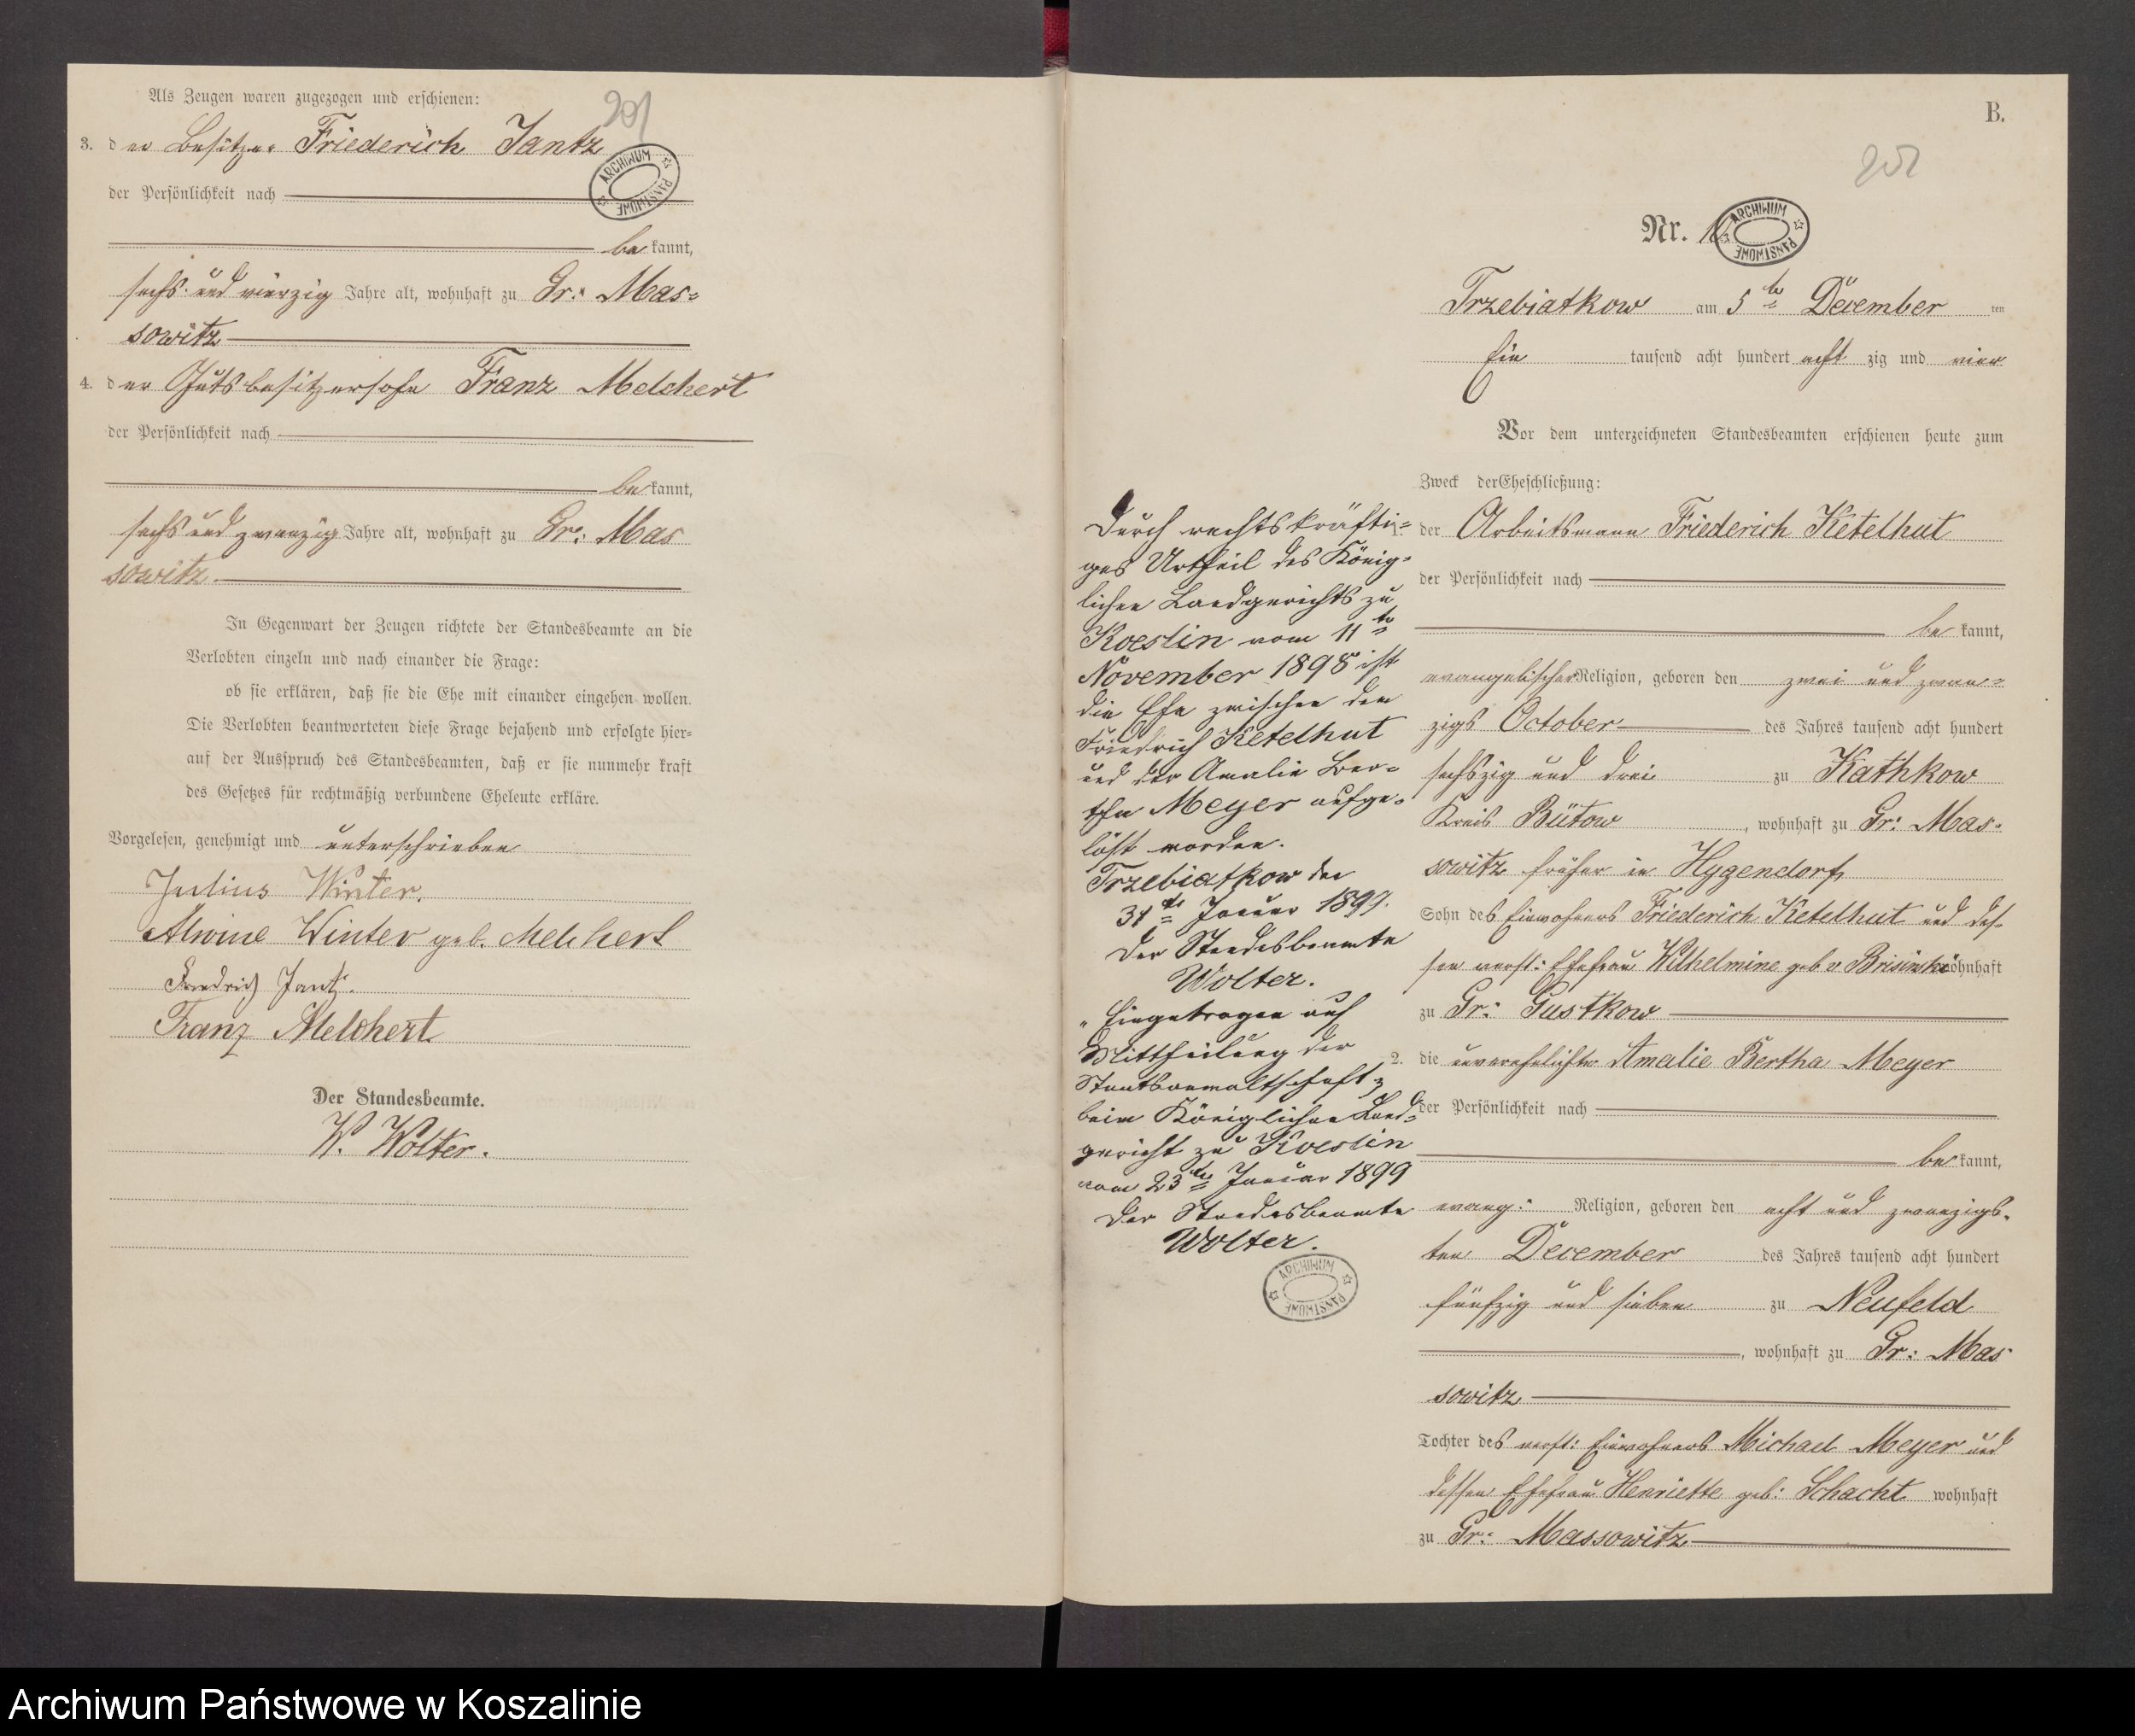 Als Zeugen waren zugezogen und erschienen:
201
3. der Besitzer Friederich Jantz
ARCHIWUM PAŃSTWOWE
der Persönlichkeit nach
bekannt,
sechs und vierzig Jahre alt, wohnhaft zu Gr: Mas=
sowitz
4. der Gutsbesitzersohn Franz Melchert
der Persönlichkeit nach
bekannt,
sechs und zwanzig Jahre alt, wohnhaft zu Gr: Mas
sowitz
In Gegenwart der Zeugen richtete der Standesbeamte an die
Verlobten einzeln und nach einander die Frage:
ob sie erklären, daß sie die Ehe mit einander eingehen wollen.
Die Verlobten beantworteten diese Frage bejahend und erfolgte hier=
auf der Ausspruch des Standesbeamten, daß er sie nunmehr kraft
des Gesetzes für rechtmäßig verbundene Eheleute erkläre.
Vorgelesen, genehmigt und unterschrieben
Julius Winter.
Alwine Winter geb. Melchert
Friedrich Jantz.
Franz Melchert
Der Standesbeamte.
W. Wolter.
B.
202
Nr.
ARCHIWUM PAŃSTWOWE
Trzebiatkow am 5te December ten
Ein tausend acht hundert acht zig und vier
Vor dem unterzeichneten Standesbeamten erschienen heute zum
Zweck der Eheschließung:
1. der Arbeitsmann Friederich Ketelhut
der Persönlichkeit nach
bekannt,
evangelischer Religion, geboren den zwei und zwan=
zigs October des Jahres tausend acht hundert
sechszig und drei zu Kathkow
Kreis Bütow, wohnhaft zu Gr: Mas=
sowitz früher in Hygendorf
Sohn des Einwohners Friederich Ketelhut und des=
sen verst: Ehefrau Wilhelmine geb v Brisinski wohnhaft
zu Gr: Gustkow
2. die unverehelichte Amalie Bertha Meyer
der Persönlichkeit nach
bekannt,
evang: Religion, geboren den acht und zwanzigs=
ten December des Jahres tausend acht hundert
fünfzig und sieben zu Neufeld
, wohnhaft zu Gr: Mas
sowitz
Tochter des verst: Einwohners Michael Meyer und
dessen Ehefrau Henriette geb: Schacht wohnhaft
zu Gr: Massowitz
Durch rechtskräfti=
ges Urtheil des König=
lichen Landgerichts zu
Koeslin vom 11te
November 1898 ist
die Ehe zwischen dem
Friedrich Ketelhut
und der Amalie Ber=
tha Meyer aufge=
löst worden.
Trzebiatkow den
31te Januar 1899.
Der Standesbeamte
Wolter.
Eingetragen auf
Mittheilung der
Staatsanwaltschaft
beim Königlichen Land=
gericht zu Koeslin
vom 23te Januar 1899
Der Standesbeamte
Wolter.
ARCHIWUM PAŃSTWOWE
Archiwum Państwowe w Koszalinie